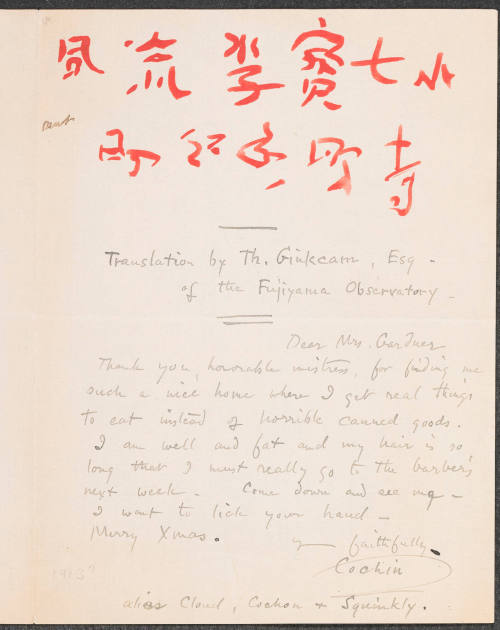 流 七
寺
Translation by Th. Ginkcam, Esq -
of the Fujiyama Observatory -
Dear Mrs. Gardner
Thank you, honorable mistress, for finding me
such a nice home where I get real things
to eat instead of horrible canned goods.
I am well and fat and my hair is so
long that I must really go to the barber's
next week - Come down and see me -
I want to lick your hand -
Merry Xmas.
faithfully
Cochin
1913?
alias Cloud, Cochon + Squinkly.